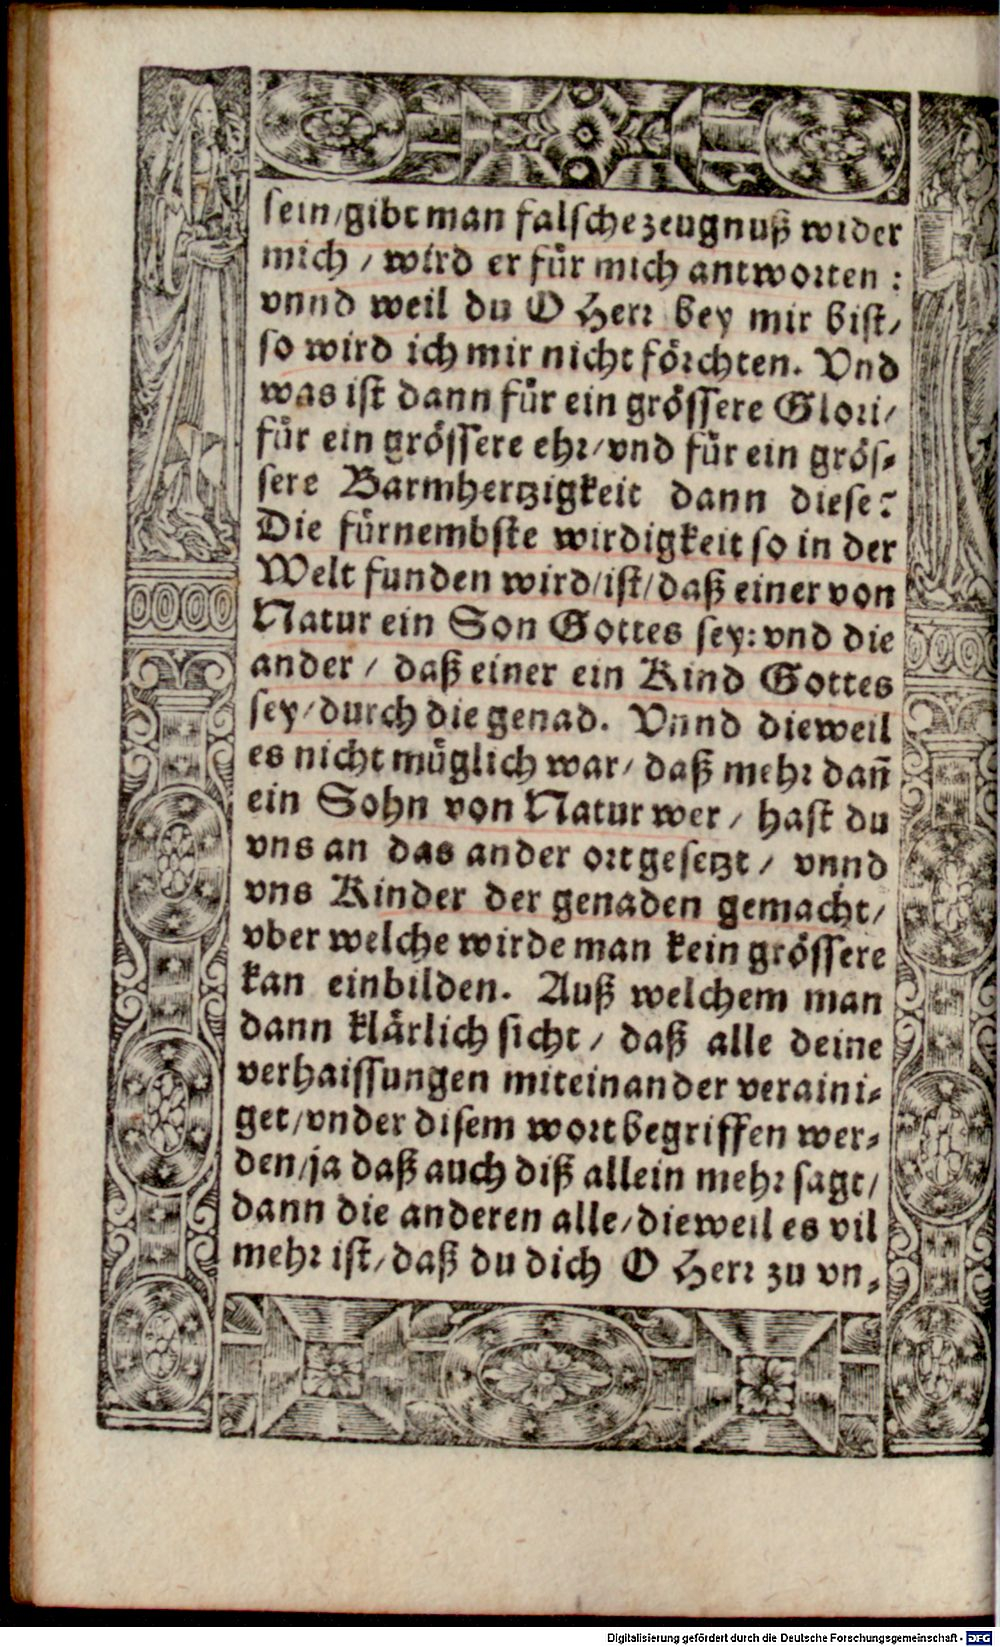 sein/gibt man falsche zeugnuß wider
mich / wird er fůr mich antworten :
vnnd weil du O Herr bey mir bist/
so wird ich mir nicht fŏrchten. Vnd
was ist dann fůr ein grŏssere Glori/
fůr ein grŏssere ehr/vnd fůr ein grŏs-
sere Barmhertzigkeit dann diese?
Die fůrnembste wirdigkeit so in der
Welt funden wird/ist/daß einer von
Natur ein Son Gottes sey: vnd die
ander / daß einer ein Kind Gottes
sey/durch die genad. Vnnd dieweil
es nicht můglich war/ daß mehr dañ
ein Sohn von Natur wer / hast du
vns an das ander ort gesetzt / vnnd
vns Kinder der genaden gemacht/
vber welche wirde man kein grŏssere
kan einbilden. Auß welchem man
dann klårlich sicht / daß alle deine
verhaissungen miteinander veraini-
get/vnder disem wort begriffen wer-
den/ja daß auch diß allein mehr sagt/
dann die anderen alle/dieweil es vil
mehr ist/daß du dich O Herr zu vn-
Digitalisierung gefördert durch die Deutsche Forschungsgemeinschaft - DFG